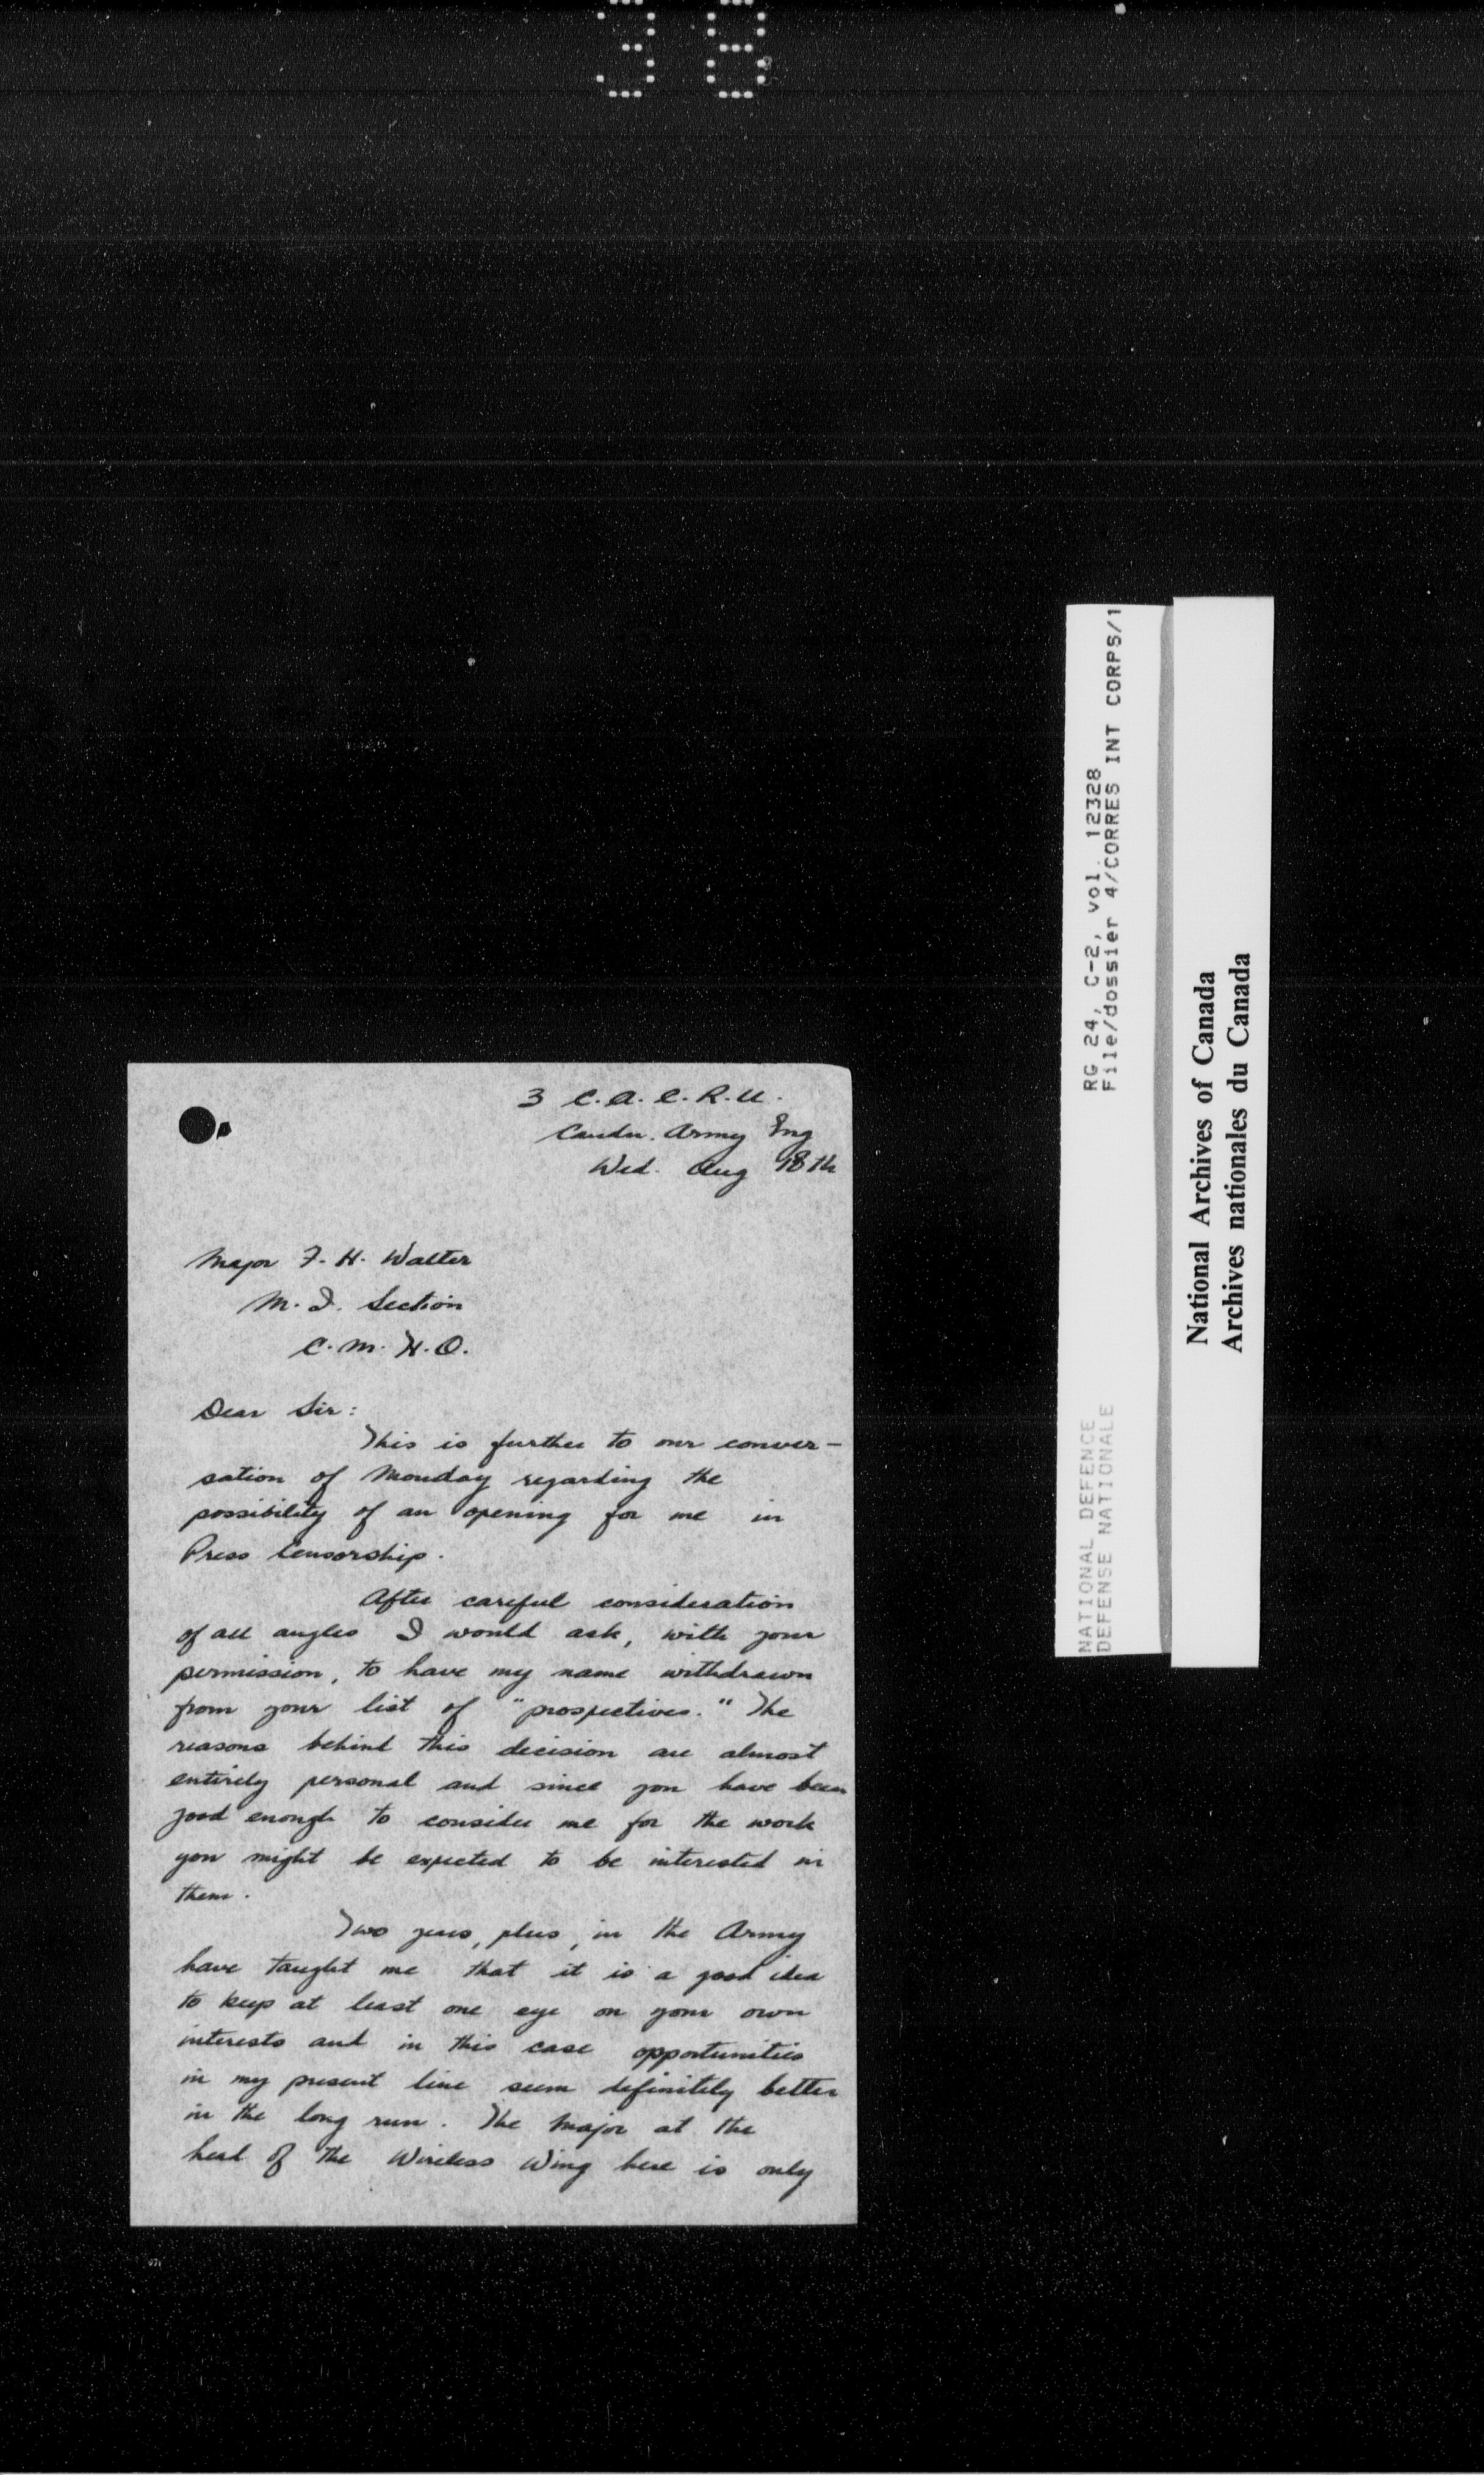 38
3 C.A.C.R.U.
Candn. Army Eng
Wed. Aug 18th
Major F. H. Walter
M. I. Section
C. M. H. Q.
Dear Sir:
This is further to our conver-
sation of Monday regarding the
possibility of an opening for me in
Press Censorship.
After careful consideration
of all angles I would ask, with your
permission, to have my name withdrawn
from your list of "prospectives." The
reasons behind this decision are almost
entirely personal and since you have been
good enough to consider me for the work
you might be expected to be interested in
them.
Two years, plus, in the Army
have taught me that it is a good idea
to keep at least one eye on your own
interests and in this case opportunities
in my present line seem definitely better
in the long run. The Major at the
head of the Wireless Wing here is only
RG 24, C-2, vol. 12328
File/dossier 4/CORRES INT CORPS/1
NATIONAL DEFENCE
DEFENSE NATIONALE
National Archives of Canada
Archives nationales du Canada